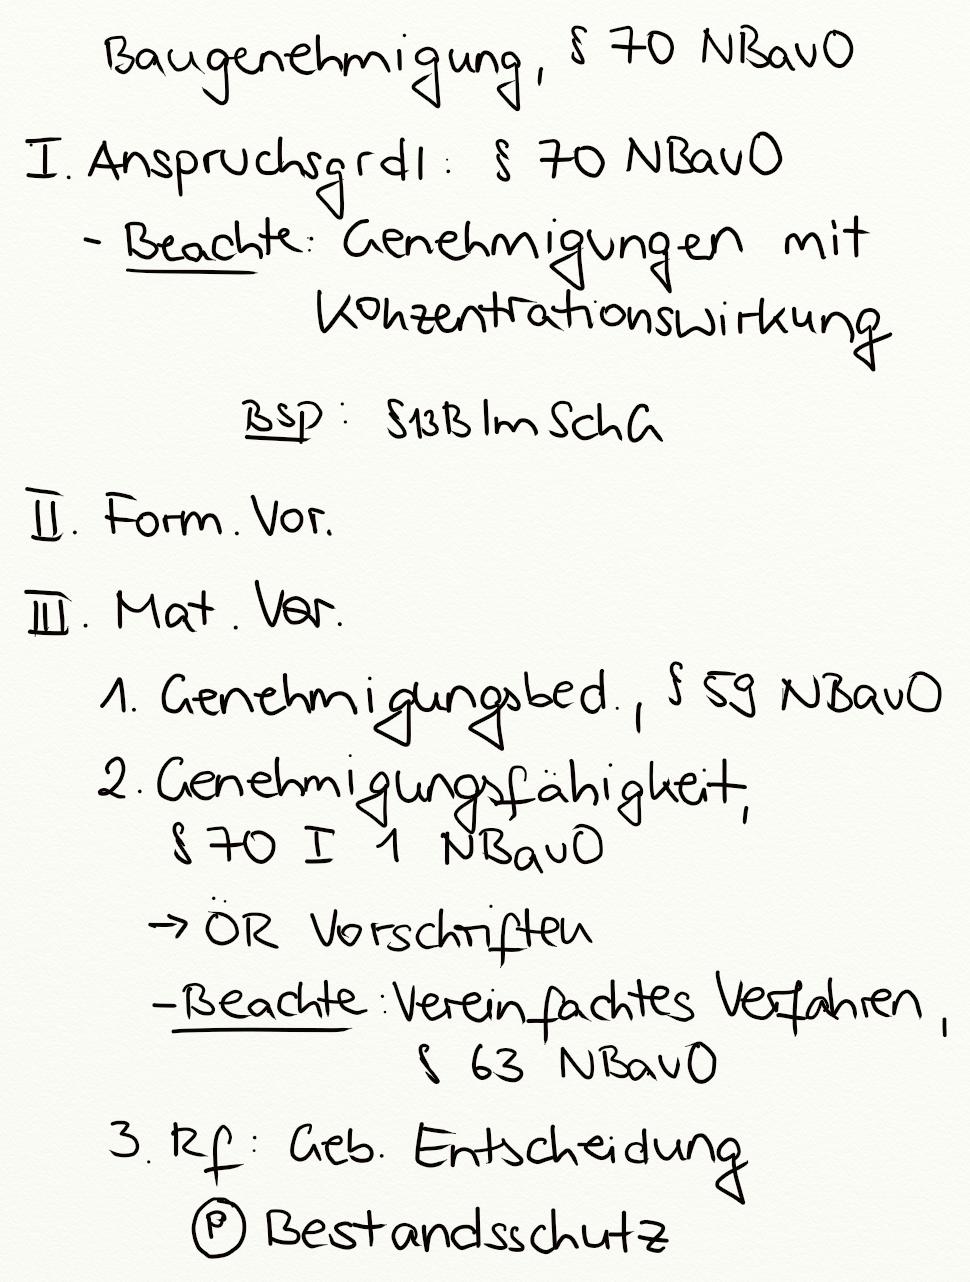 Baugenehmigung, § 70 NBauO
I. Anspruchsgrdl: § 70 NBauO
- Beachte: Genehmigungen mit
Konzentrationswirkung
BSP: §13BImSchG
II. Form. Vor.
III. Mat. Vor.
1. Genehmigungsbed., § 59 NBauO
2. Genehmigungsfähigkeit,
§ 70 I 1 NBauO
→ ÖR Vorschriften
- Beachte: Vereinfachtes Verfahren,
§ 63 NBauO
3. Rf: Geb. Entscheidung
Ⓟ Bestandsschutz